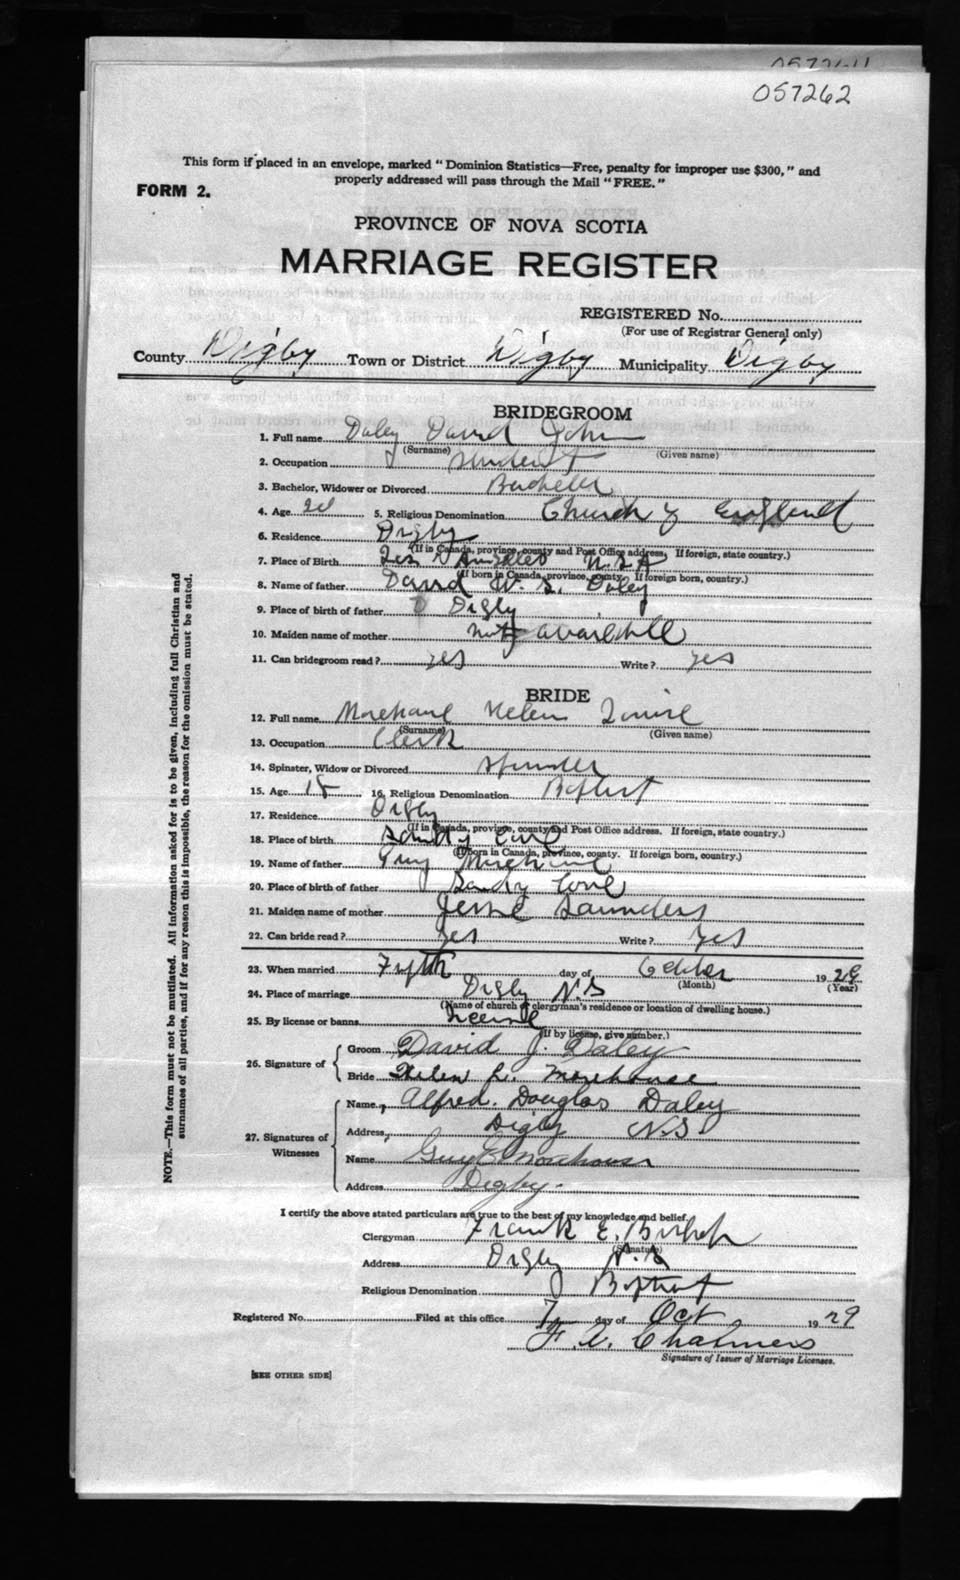 057264
057262
This form if placed in an envelope, marked "Dominion Statistics—Free, penalty for improper use $300," and
properly addressed will pass through the Mail "FREE."
FORM 2.
PROVINCE OF NOVA SCOTIA
MARRIAGE REGISTER
REGISTERED No.
(For use of Registrar General only)
County Digby Town or District Digby Municipality Digby
BRIDEGROOM
1. Full name Daley David John
(Surname) (Given name)
2. Occupation Student
3. Bachelor, Widower or Divorced Bachelor
4. Age 20 5. Religious Denomination Church of England
6. Residence Digby
(If in Canada, province, county and Post Office address, If foreign, state country.)
7. Place of Birth Los Angeles U.S.A
(If born in Canada, province, county. If foreign born, country.)
8. Name of father David W. S. Daley
9. Place of birth of father Digby
10. Maiden name of mother not available
11. Can bridegroom read? yes Write? yes
BRIDE
12. Full name Morehouse Helen Louise
(Surname) (Given name)
13. Occupation Clerk
14. Spinster, Widow or Divorced Spinster
15. Age 18 16. Religious Denomination Baptist
17. Residence Digby
(If in Canada, province, county and Post Office address. If foreign, state country.)
18. Place of birth Sandy Cove
(If born in Canada, province, county. If foreign born, country.)
19. Name of father Guy Morehouse
20. Place of birth of father Sandy Cove
21. Maiden name of mother Jessie Saunders
22. Can bride read? yes Write? yes
23. When married Fifth day of October 1929
(Month) (Year)
24. Place of marriage Digby N.S
(Name of church of clergyman's residence or location of dwelling house.)
25. By license or banns License
(If by license, give number.)
26. Signature of
Groom David J. Daley
Bride Helen L. Morehouse
27. Signatures of Witnesses
Name, Alfred Douglas Daley
Address, Digby N.S.
Name Guy E Morehouse
Address Digby.
I certify the above stated particulars are true to the best of my knowledge and belief.
Clergyman Frank E. Bishop
(Signature)
Address Digby N.S
Religious Denomination Baptist
Registered No. Filed at this office 7 day of Oct 1929
Chalmers
Signature of Issuer of Marriage Licenses.
[SEE OTHER SIDE]
NOTE.—This form must not be mutilated. All information asked for is to be given, including full Christian and
surnames of all parties, and if for any reason this is impossible, the reason for the omission must be stated.